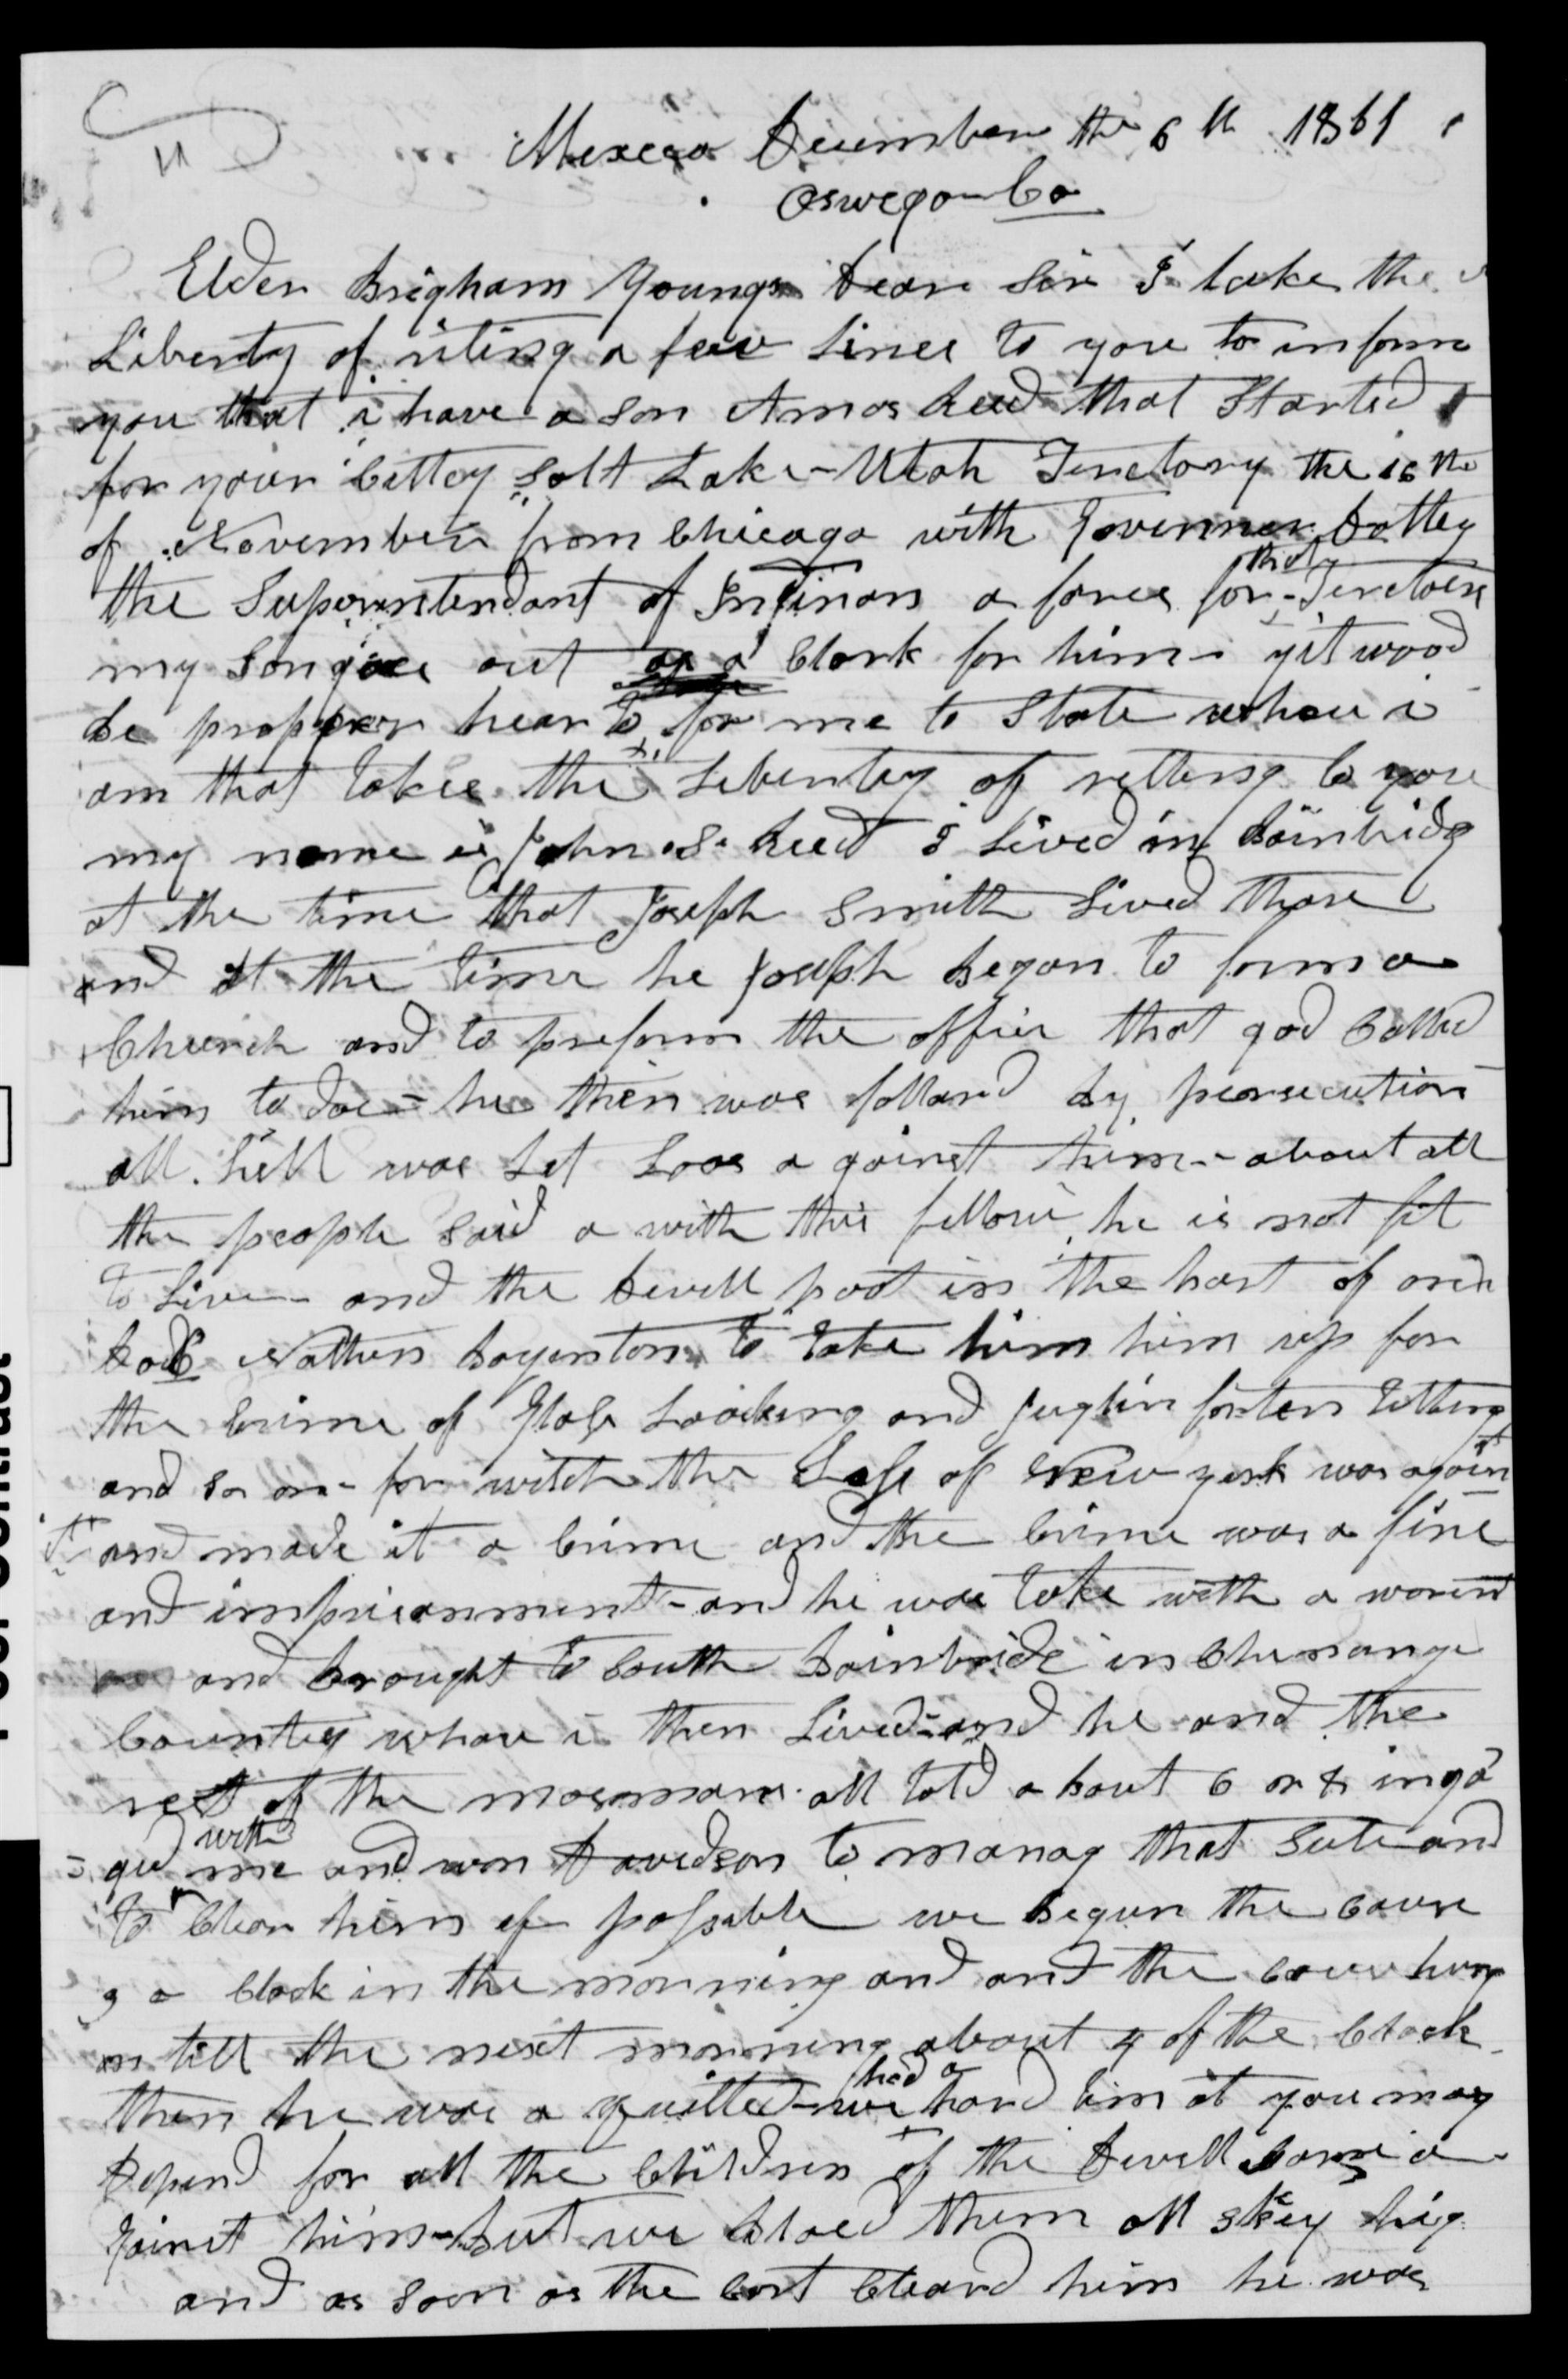 Mexeco December the 6th 1861
Oswego Co
Elder Brigham Young Dear Sir I take the
Liberty of riting a few Lines to you to inform
you that i have a son Amos Reed that Started
for your Cittey Salt Lake - Utah Terretory the 16 th
of November from Chicago with Govenner Dottey
the Superintendant of Indians a fares for that Terretory
my son goes out as a Clark for him - yit wood
be propper hear to for me to State whou i
am that takes the Leberty of retting to you
my name is John S. Reed I Lived in Bainbridg
at the time that Joseph Smith Lived thare
and at the time he Joseph began to form a
Church and to preform the office that god Called
him to doe - he then was follard by pearsecution
all hell was Let Loos a gainst him - about all
the people said a with this fellow he is not fit
to Live - and the Devell poot in the hart of one
Doct Nathan Boyenton to take him him up for
the Crime of Glass Looking and Juglin forten telling
and so on - for witch the Lass of New york was again
st and made it a Crime and the Crime was a fine
and imprisonment - and he was take with a warent
and brought to South Bainbride in Chenange
Countey whare i then Lived - and he and the
rest of the mormans all told a bout 6 or 8 inga
ged with me and wm Davidson to manag that Sute and
to Clear him if possable we begun the Cause
9 a Clock in the morning and and the Cause hung
on till the next morning about 4 of the Clock
then he was a quitted - we had a hard time at you may
Depend for all the Children of the Devell Came a
gainst him - but we bloed them all skey hig
and as soon as the Cort Cleard him he was